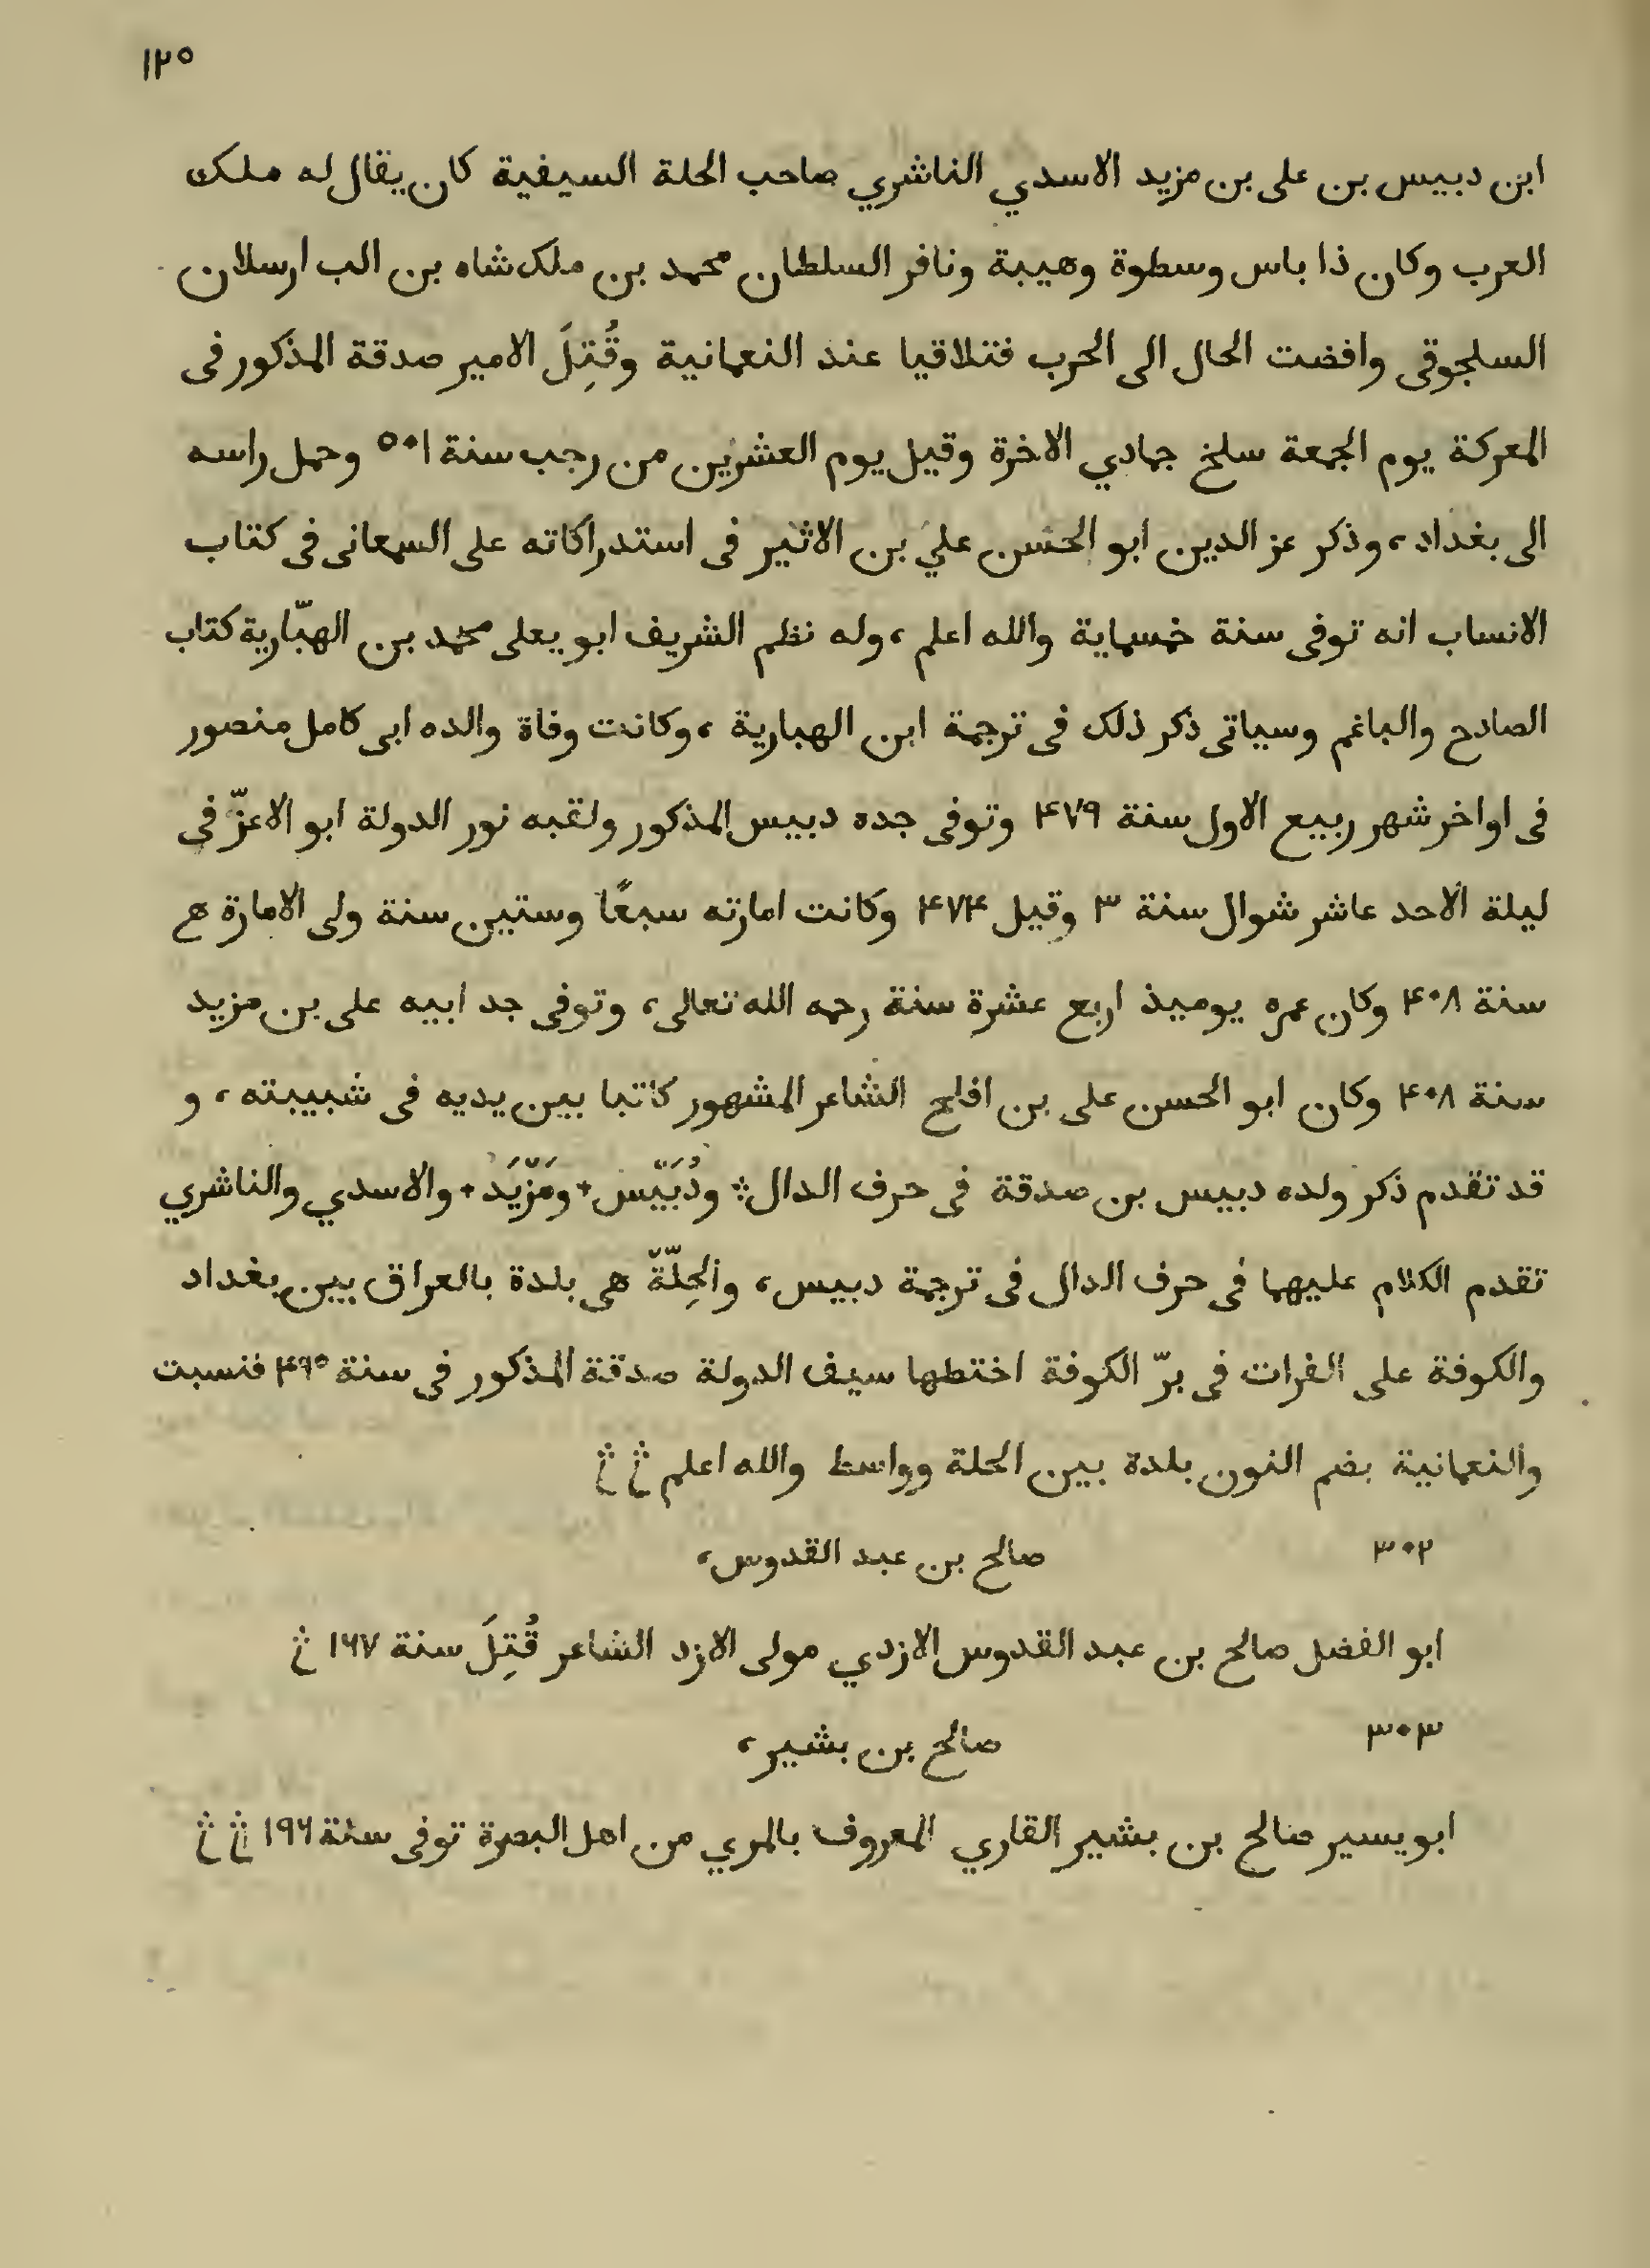 ١٢٥
ابن دبيس بن على بن مزيد الاسدي الناشري صاحب الحلة السيفية كان يقال له ملك
العرب وكان ذا باس وسطوة وهيبة ونافر السلطان محمد بن ملكشاه بن الب ارسلان
السلجوقى وافضت الحال الى الحرب فتلاقيا عند النعمانية وقُتِلَ الامير صدقة المذكور فى
المعركة يوم الجمعة سلخ جمادي الاخرة وقيل يوم العشرين من رجب سنة ٥٠١ وحمل راسه
الى بغداد، وذكر عز الدين ابو الحسن علي بن الاثير فى استدراكاته على السمعانى فى كتاب
الانساب انه توفى سنة خمسماية والله اعلم، وله نظم الشريف ابو يعلى محمد بن الهبّارية كتاب
الصادح والباغم وسياتى ذكر ذلك فى ترجمة ابن الهبارية، وكانت وفاة والده ابى كامل منصور
فى اواخر شهر ربيع الاول سنة ٤٧٩ وتوفى جده دبيس المذكور ولقبه نور الدولة ابو الاعزّ فى
ليلة الاحد عاشر شوال سنة ٣ وقيل ٤٧٤ وكانت امارته سبعًا وستين سنة ولى الامارة
سنة ٤٠٨ وكان عمره يوميذ اربع عشرة سنة رحمه الله تعالى، وتوفى جد ابيه على بن مزيد
سنة ٤٠٨ وكان ابو الحسن على بن افلح الشاعر المشهور كاتبا بين يديه فى شبيبته، و
قد تقدم ذكر ولده دبيس بن صدقة فى حرف الدال ⁘ ودُبَيّس + ومَزّيَد + والاسدي والناشري
تقدم الكلام عليهما فى حرف الدال فى ترجمة دبيس، والحِلّة هى بلدة بالعراق بين بغداد
والكوفة على الفرات فى برّ الكوفة اختطها سيف الدولة صدقة المذكور فى سنة ٤٩٥ فنسبت
والنعمانية بضم النون بلدة بين الحلة وواسط والله اعلم
٣٠٢ صالح بن عبد القدوس،
ابو الفضل صالح بن عبد القدوس الازدي مولى الازد الشاعر قُتِلَ سنة ١٦٧
٣٠٣ صالح بن بشير،
ابو يسير صالح بن بشير القاري المعروف بالمري من اهل البصرة توفى سنة ١٩٦